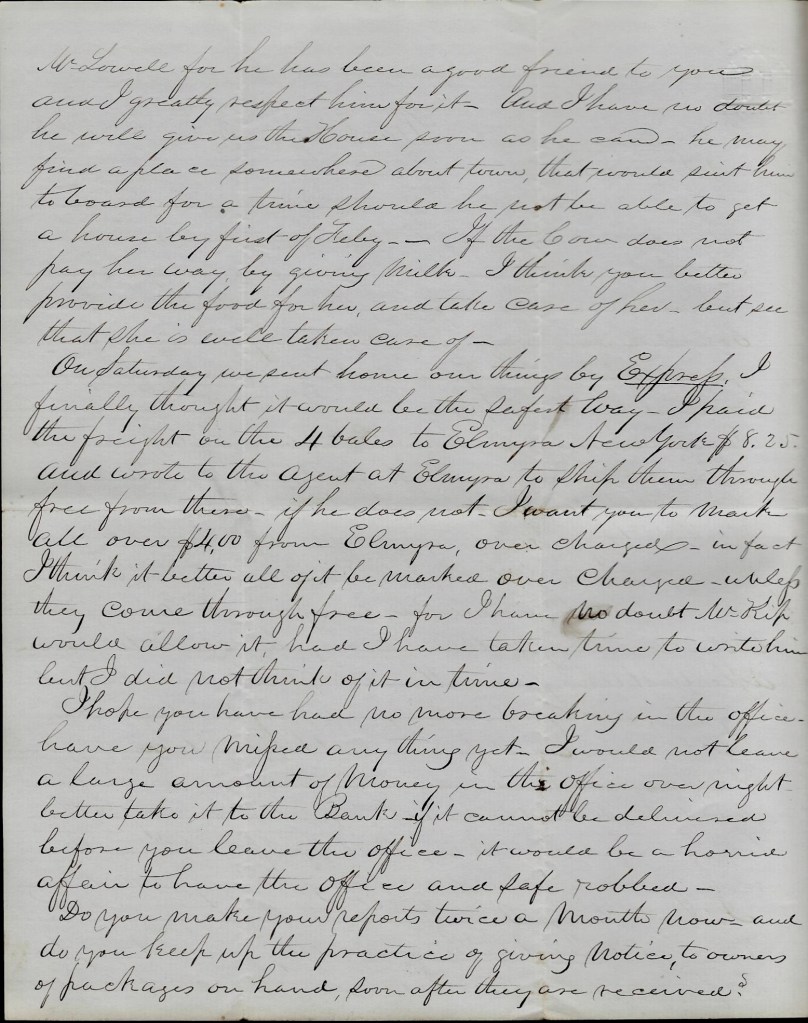 Mr Lowell for he has been a good friend to you
and I greatly respect him for it - And I have no doubt
he will give us the House soon as he can - he may
find a place somewhere about town, that would suit him
to board for a time should he not be able to get
a house by first of Feby. - If the Cow does not
pay her way, by giving Milk - I think you better
provide the food for her, and take care of her - but see
that she is well taken care of -
On Saturday we sent home our things by Express. I
finally thought it would be the safest way - I paid
the freight on the 4 bales to Elmyra New York $8.25.
and wrote to the Agent at Elmyra to ship them through
free from there - if he does not - I want you to mark
all over $4,00 from Elmyra, over charged - in fact
I think it better all of it be marked over charged - unless
they come through free - for I have no doubt Mr Kip
would allow it, had I have taken time to write him
but I did not think of it in time -
I hope you have had no more breaking in the office -
have you missed any thing yet - I would not leave
a large amount of Money in the office over night
better take it to the Bank - if it cannot be delivered
before you leave the office - it would be a horrid
affair to have the office and safe robbed -
Do you make your reports twice a Month now - and
do you keep up the practice of giving Notice, to owners
of packages on hand, soon after they are received?